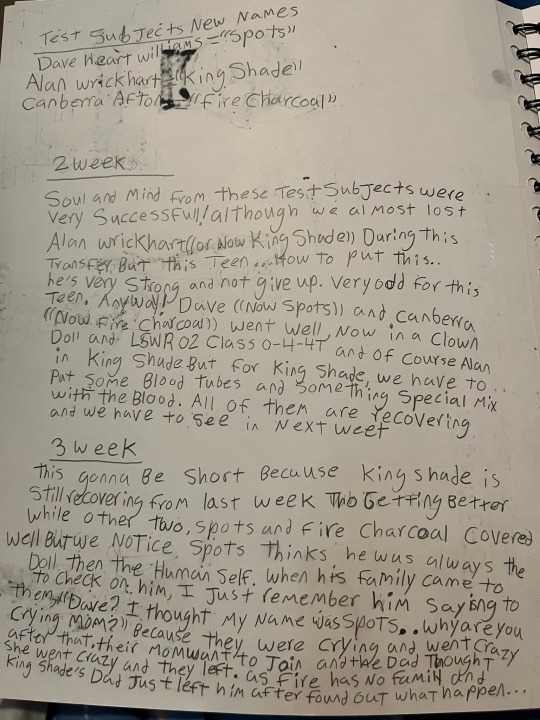 Test Subjects New Names
Dave Heart williams = "Spots"
Alan wrickhart "King Shade"
Canberra Afton "Fire Charcoal"
2 week
Soul and Mind From these Test Subjects were
very Successful! although we almost lost
Alan wrickhart((or Now King Shade)) During this
Transfer. But this Teen...How to put this..
he's very Strong and not give up. Very odd for this
Teen. Anyway! Dave ((Now Spots)) and Canberra
((Now Fire Charcoal)) went well, Now in a Clown
Doll and LSWR 02 Class 0-4-4T and of Course Alan
in King Shade. But for King Shade, we have to
Put Some Blood tubes and Something Special Mix
with the Blood. All of them are recovering
and we have to See in Next weet
3 week
this gonna Be Short Because King shade is
Still recovering from last week Tho Getting Better
while other two, spots and Fire Charcoal Covered
well But we Notice Spots Thinks he was always the
Doll then the Human Self. when his family came to
to check on him, I Just remember him Saying to
them, "Dave? I thought My Name was SPOTS.. why are you
Crying Mom?" Because they were crying and went Crazy
after that. their Mom want to Join and the Dad Thought
She went Crazy and they left. as Fire has No Family and
King Shade's Dad Just left him after found out what happen...